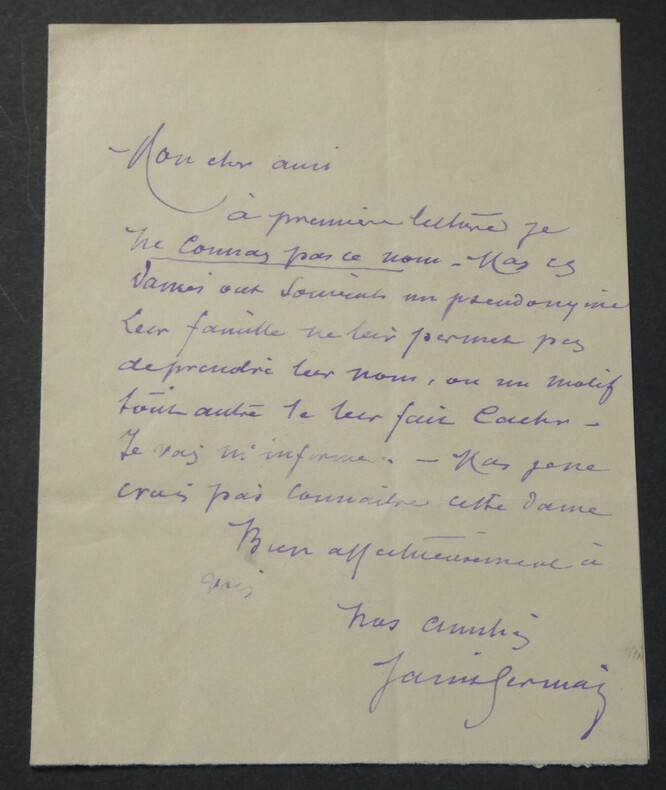 Mon cher ami
à première lecture je
ne connais pas ce nom - Mais ces
dames ont souvent un pseudonyme
Leur famille ne leur permet pas
de prendre leur nom, ou un motif
tout autre le leur fait cacher -
Je vais m'informer. - Mais je ne
crois pas connaître cette dame
Bien affectueusement à
vous